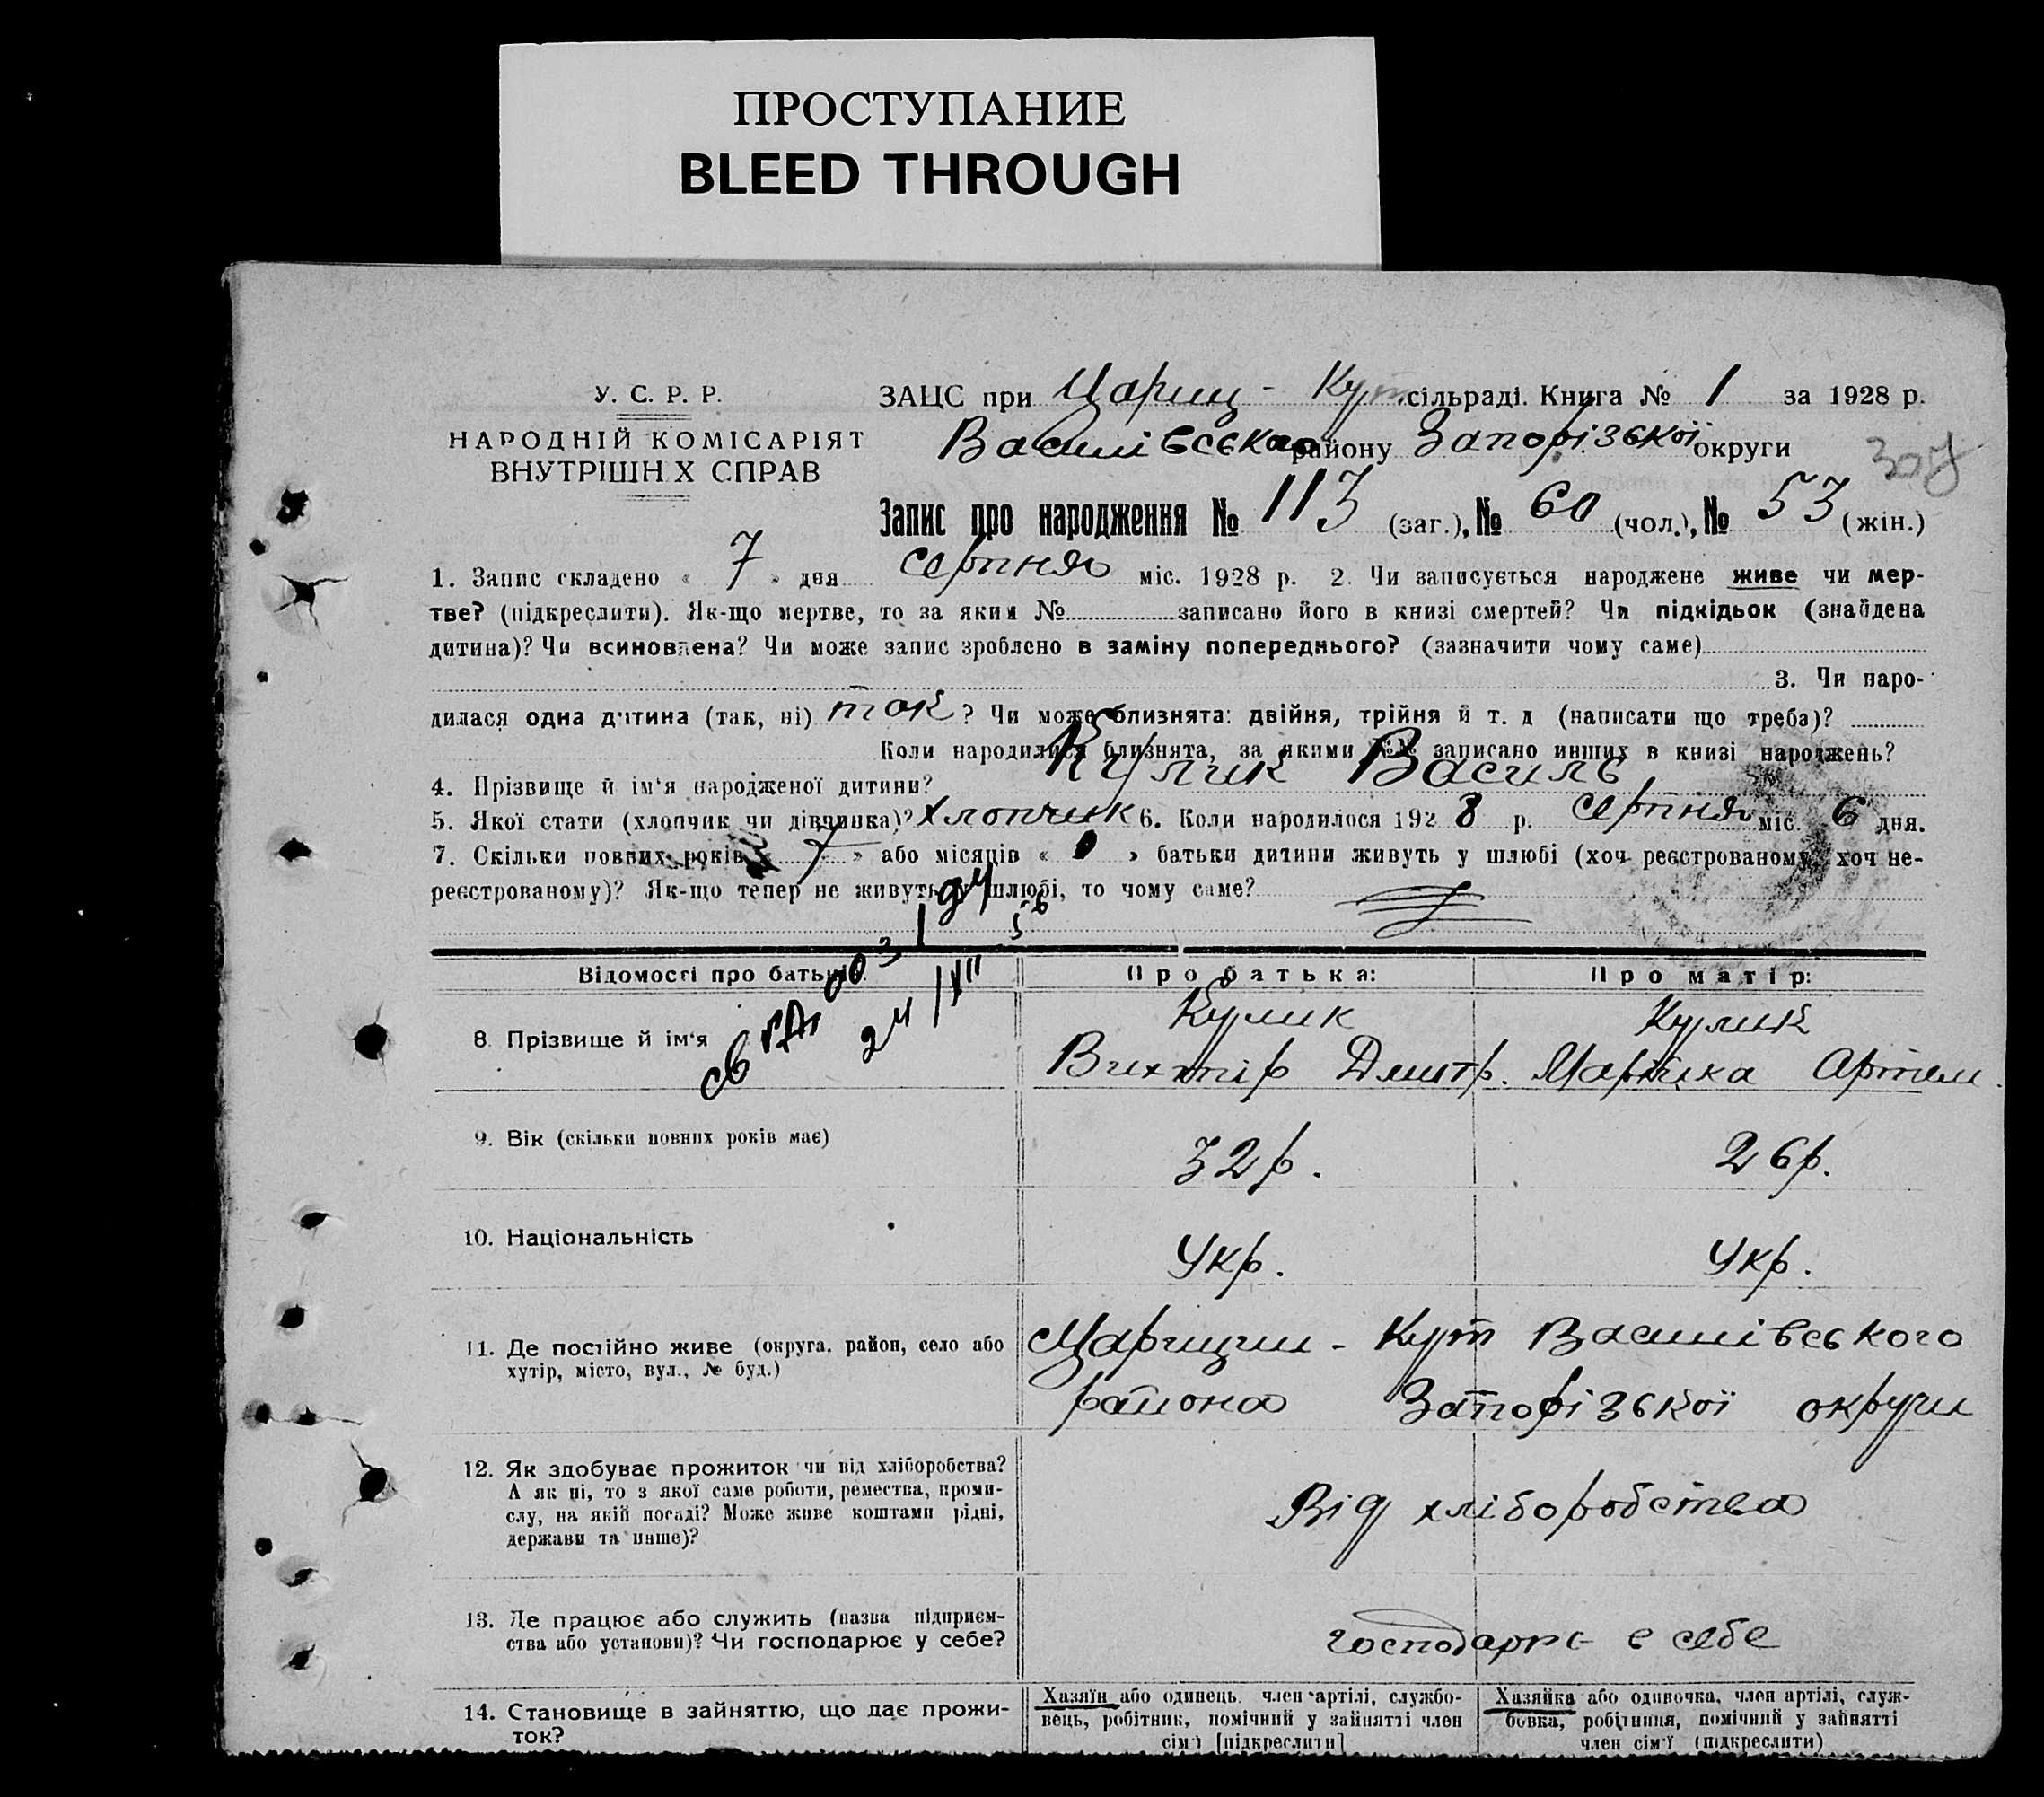 ПРОСТУПАНИЕ
BLEED THROUGH
У. С. Р. Р.
НАРОДНІЙ КОМІСАРІЯТ
ВНУТРІШН Х СПРАВ
ЗАЦС при Цариц - Кут сільраді. Книга № 1 за 1928 р.
Василівська району Запорізької округи
307
Запис про народження № 113 (заг.), № 60 (чол.), № 53 (жін.)
1. Запис складено « 7 » дня серпня міс. 1928 р. 2. Чи записується народжене живе чи мер-
тве? (підкреслити). Як-що мертве, то за яким № записано його в книзі смертей? Чи підкідьок (знайдена
дитина)? Чи всиновлена? Чи може запис зроблено в заміну попереднього? (зазначити чому саме)
3. Чи наро-
дилася одна дитина (так, ні) так ? Чи може близнята: двійня, трійня й т. д (написати що треба)?
Коли народилися близнята, за якими №№ записано инших в книзі народжень?
4. Прізвище й ім‘я народженої дитини? Кулик Василь
5. Якої стати (хлопчик чи дівчинка)? хлопчик 6. Коли народилося 1928 р. серпня міс. 6 дня.
7. Скільки повних років « 7 » або місяців « 0 » батьки дитини живуть у шлюбі (хоч реєстрованому, хоч не-
реєстрованому)? Як-що тепер не живуть у шлюбі, то чому саме?
Відомості про батьків
Про батька:
Про матір:
8. Прізвище й ім‘я
Кулик
Вихтір Дмитр.
Кулик
Марійка Артем.
9. Вік (скільки повних років має)
32 р.
26 р.
10. Національність
Укр.
Укр.
11. Де постійно живе (округа, район, село або
хутір, місто, вул., № буд.)
Царицин - Кут Василівського
района Запорізької округи
12. Як здобуває прожиток чи від хліборобства?
А як ні, то з якої саме роботи, ремества, проми-
слу, на якій посаді? Може живе коштами рідні,
держави та инше)?
Від хліборобства
13. Де працює або служить (назва підприєм-
ства або установи)? Чи господарює у себе?
господарює в себе
14. Становище в зайняттю, що дає прожи-
ток?
Хазяїн або одинець, член артілі, службо-
вець, робітник, помічний у зайнятті член
сім‘ї [підкреслити]
Хазяйка або одиночка, член артілі, служ-
бовка, робітниця, помічний у зайнятті
член сім‘ї (підкреслити)